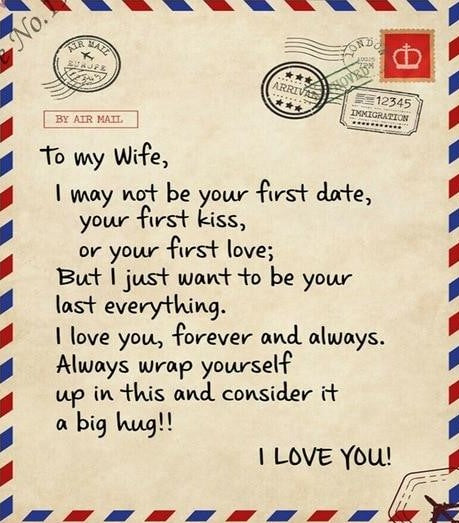 e No.1
AIR MAIL
EUROPE
LONDON
ARRIVAL
12345
IMMIGRATION
BY AIR MAIL
To my Wife,
I may not be your first date,
your first kiss,
or your first love;
But I just want to be your
last everything.
I love you, forever and always.
Always wrap yourself
up in this and consider it
a big hug!!
I LOVE YOU!